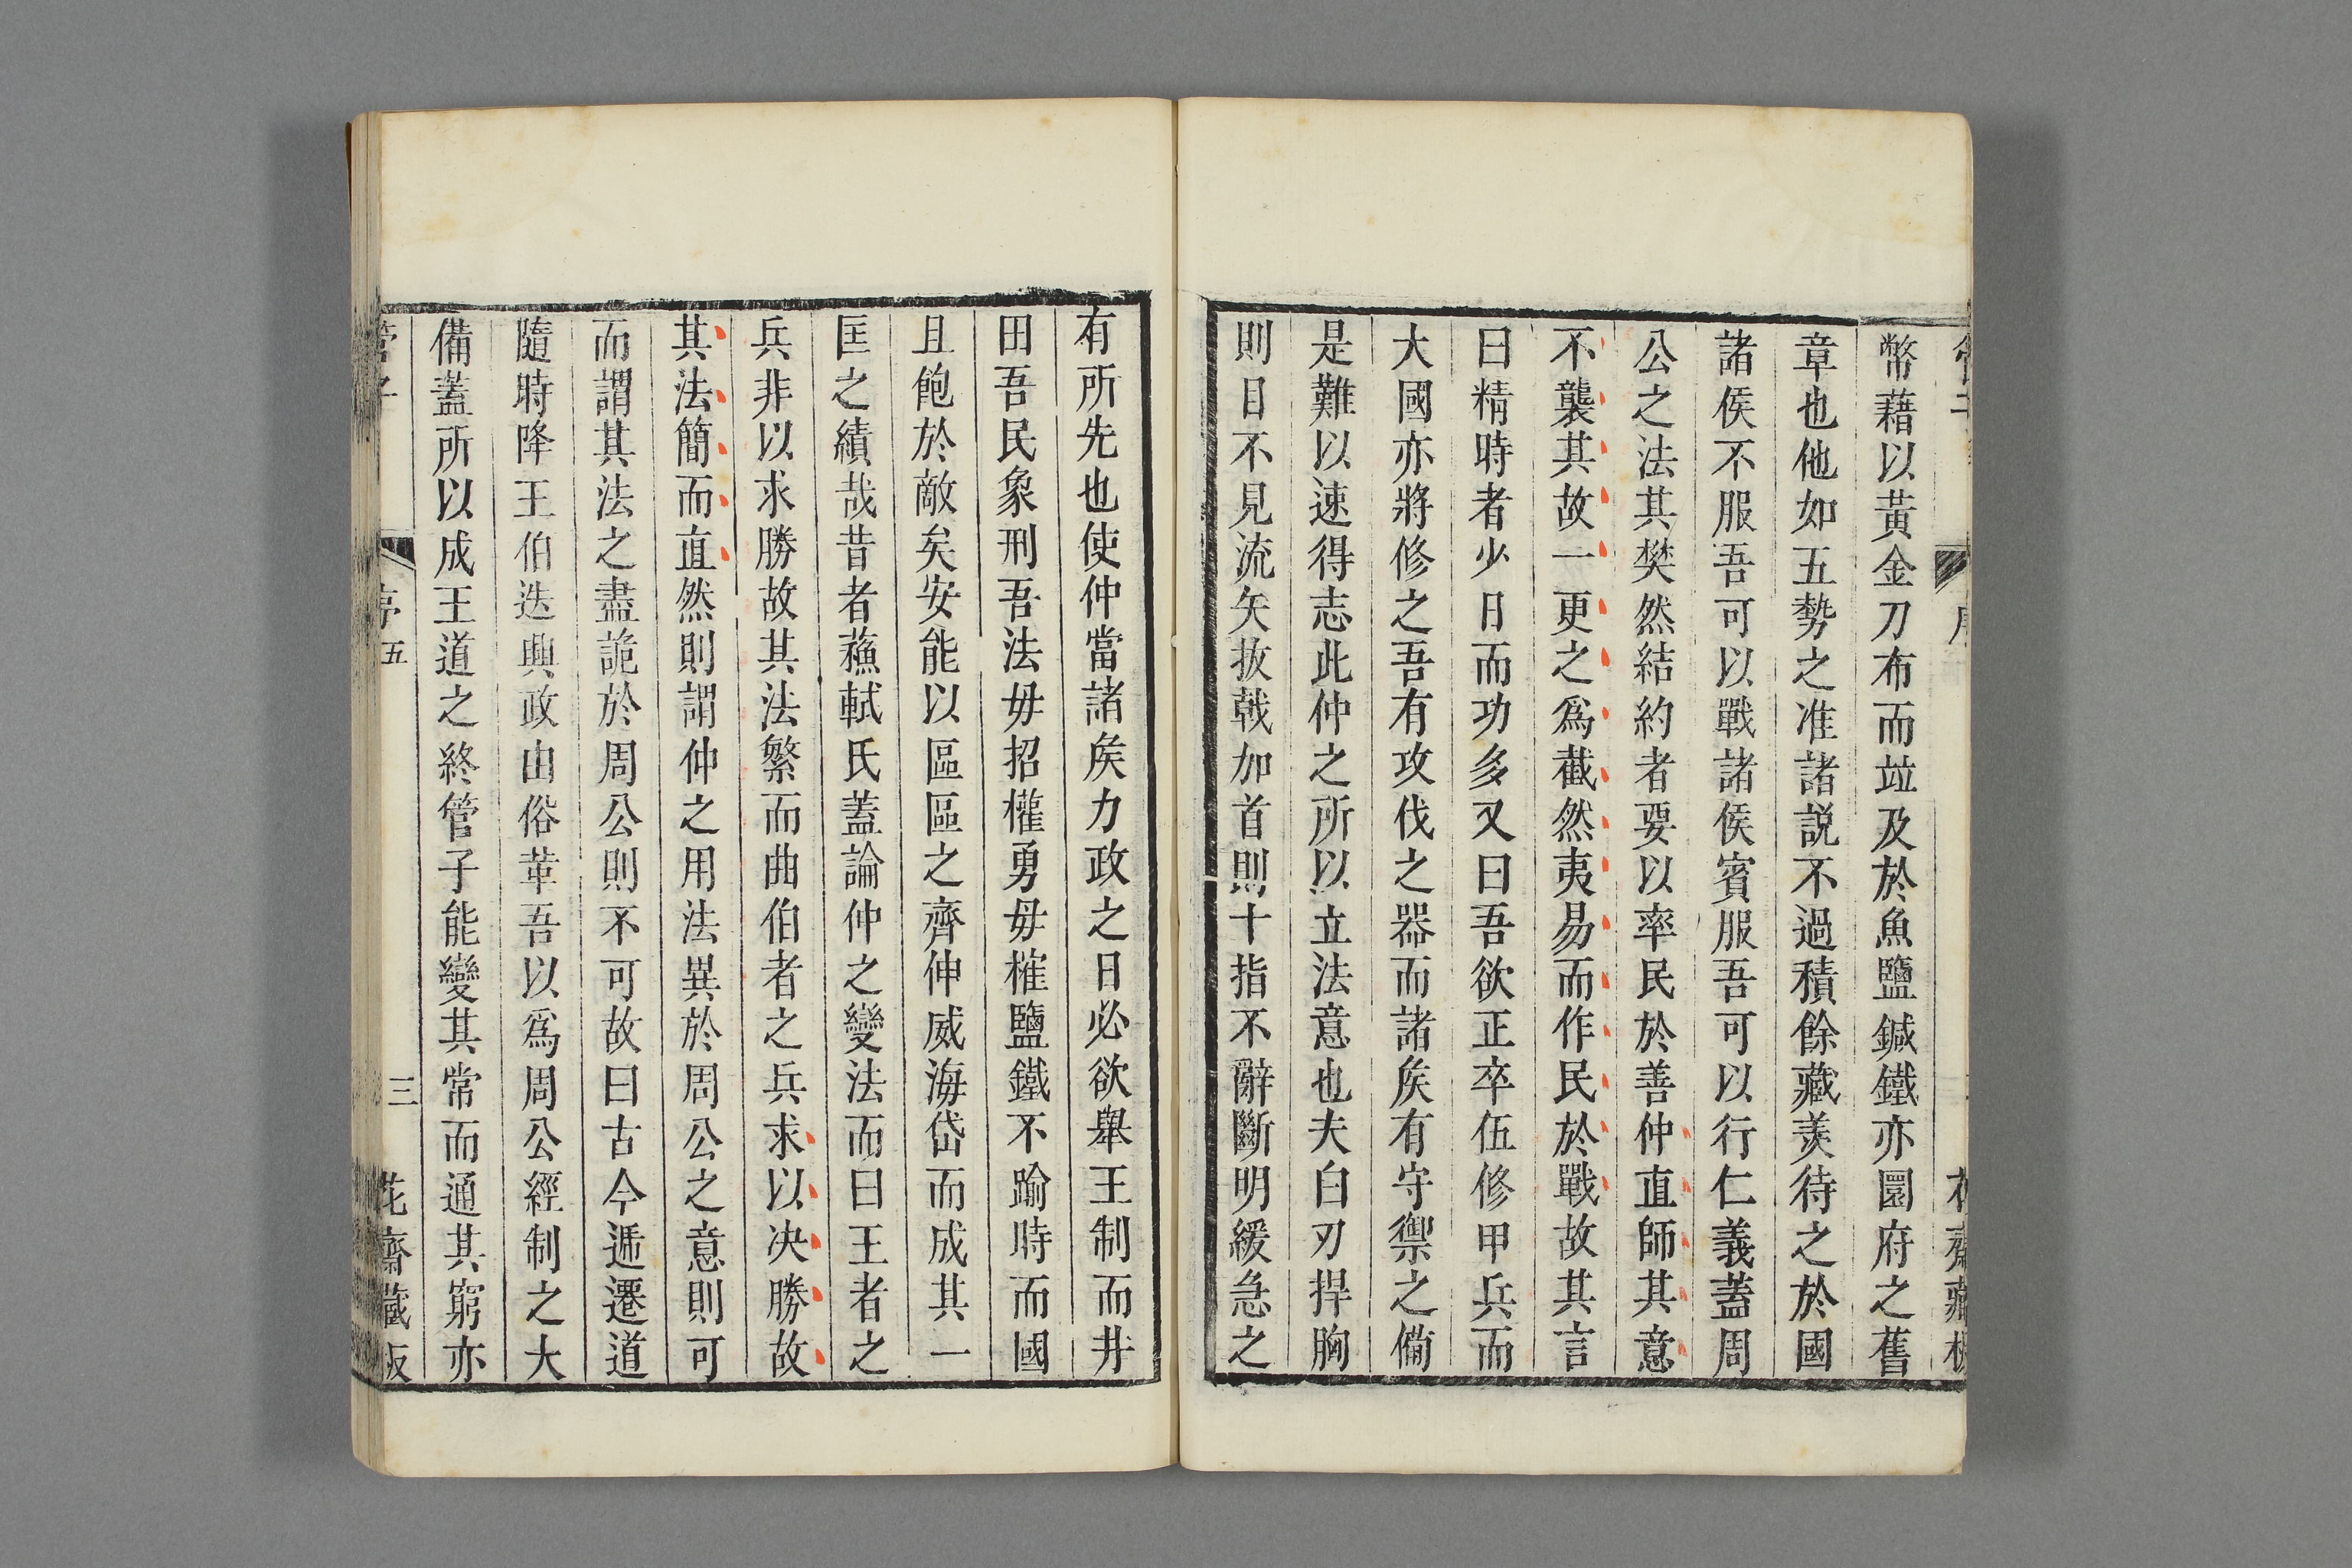 幣藉以黃金刀布而竝及於魚鹽鍼鐵亦圜府之舊
章也他如五勢之准諸説不過積餘藏羨待之於國
諸侯不服吾可以戰諸侯賓服吾可以行仁義蓋周
公之法其樊然結約者要以率民於善仲直師其意
不襲其故一更之爲截然夷易而作民於戰故其言
曰精時者少日而功多又曰吾欲正卒伍修甲兵而
大國亦將修之吾有攻伐之器而諸矦有守禦之備
是難以速得志此仲之所以立法意也夫白刃捍胸
則目不見流矢拔戟加首則十指不辭斷明緩急之
有所先也使仲當諸矦力政之日必欲舉王制而井
田吾民象刑吾法毋招權勇毋榷鹽鐵不踰時而國
且飽於敵矣安能以區區之齊伸威海岱而成其一
匡之績哉昔者蘓軾氏蓋論仲之變法而曰王者之
兵非以求勝故其法繁而曲伯者之兵求以决勝故
其法簡而直然則謂仲之用法異於周公之意則可
而謂其法之盡詭於周公則不可故曰古今遞遷道
隨時降王伯迭興政由俗革吾以爲周公經制之大
備蓋所以成王道之終管子能變其常而通其窮亦
管子
序五
三
花齋藏板